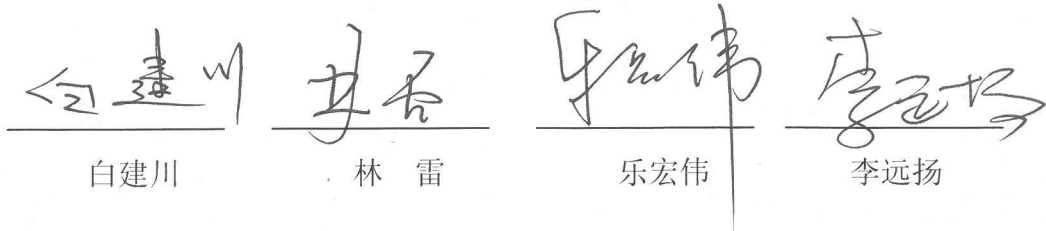 白建川 林雷 乐宏伟 李远扬
白建川 林 雷 乐宏伟 李远扬